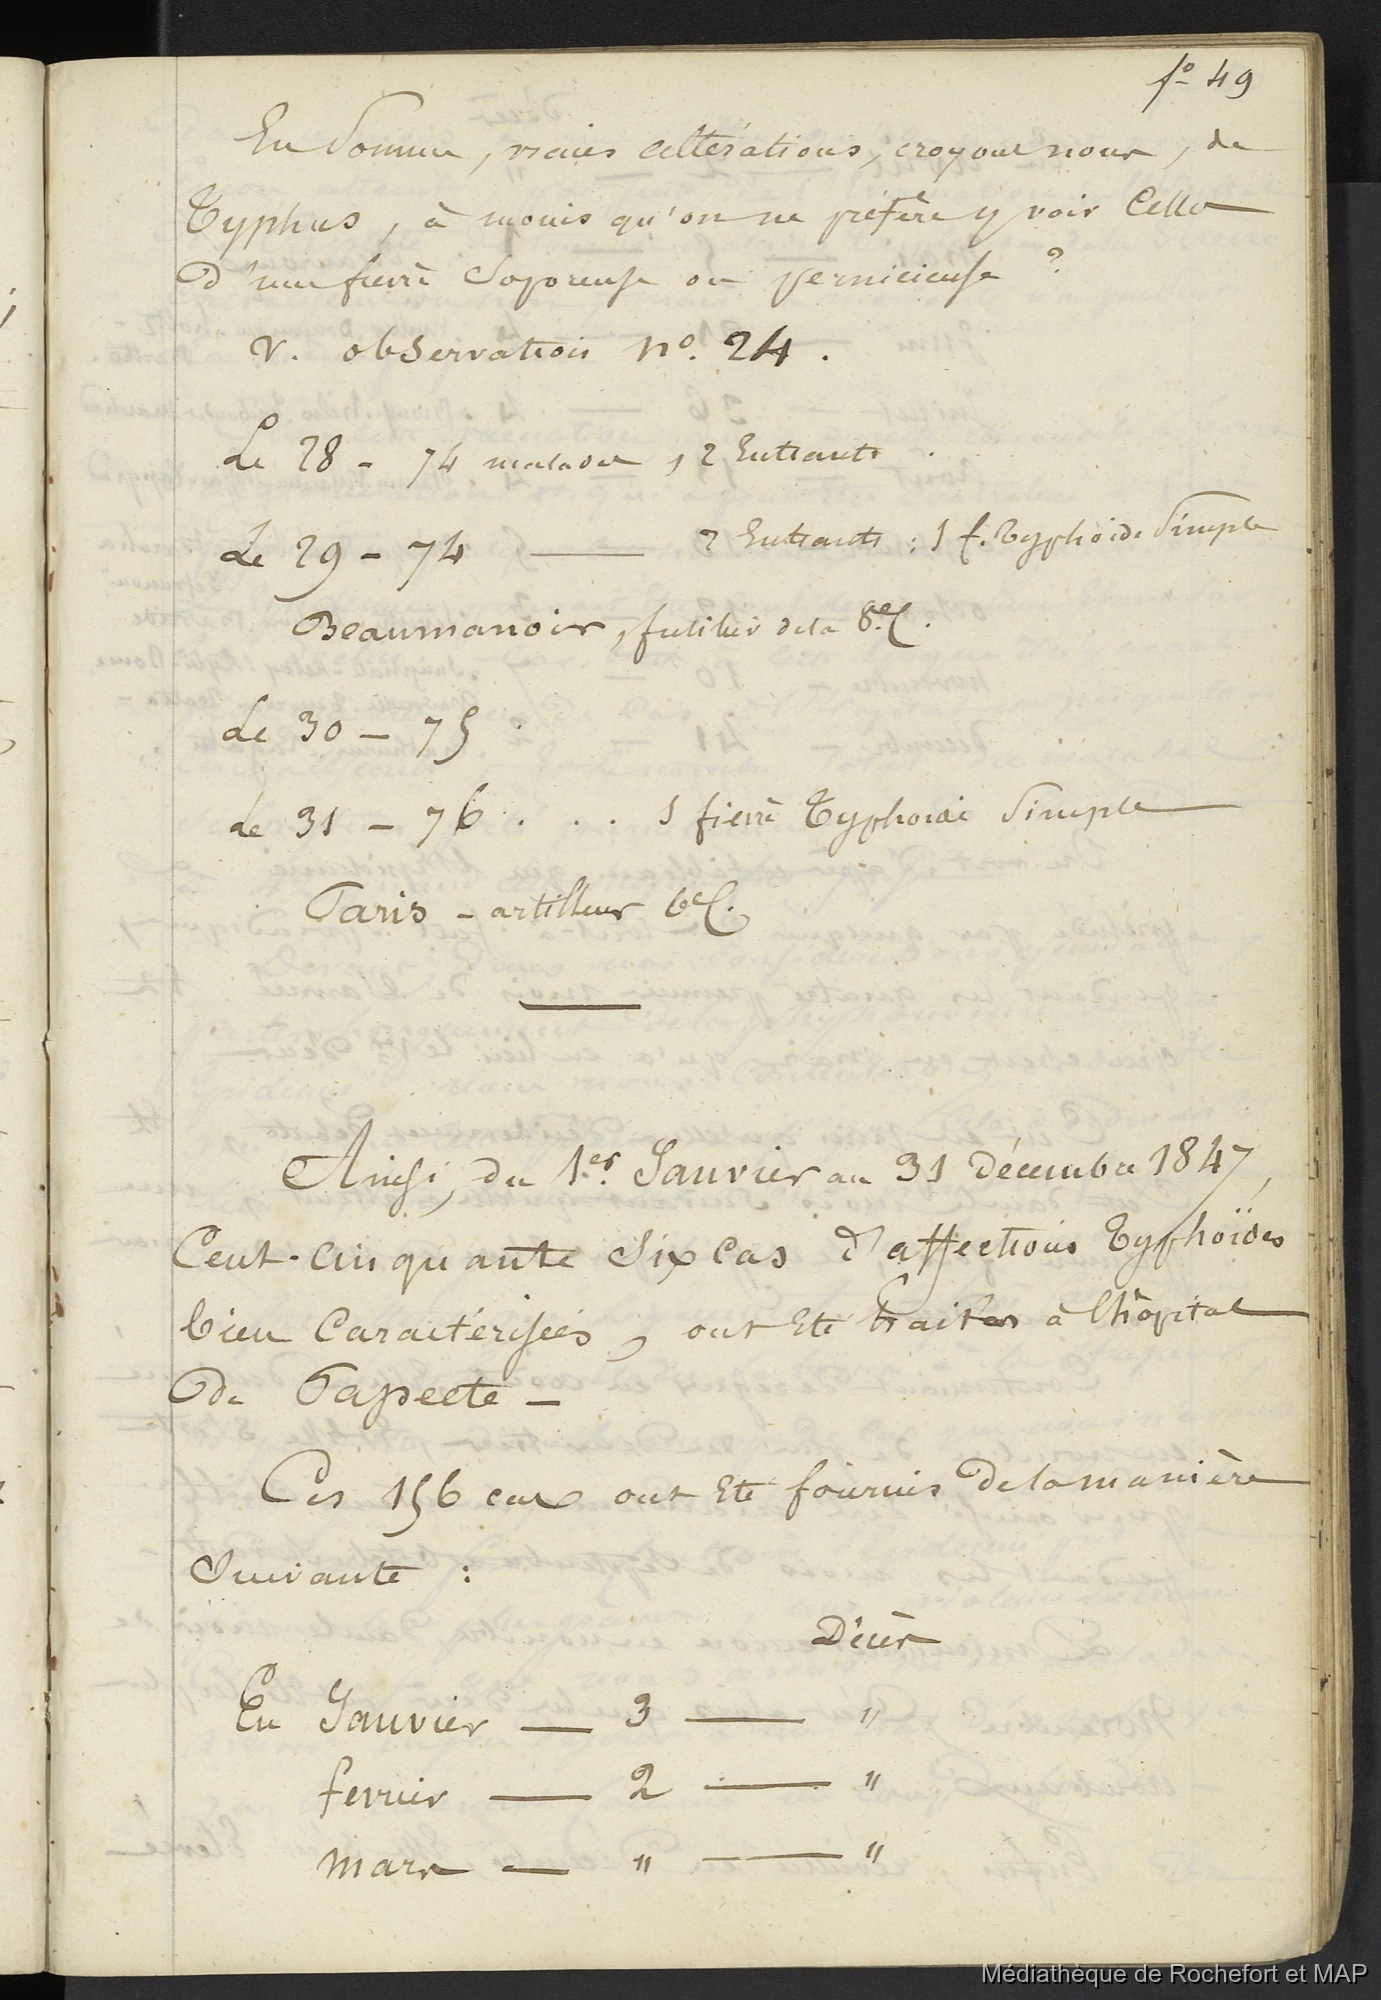 fo 49
En Somme, vraies altérations, croyons nous, de
Typhus, à moins qu'on ne préfère y voir Celle
D'une fievre Soporeuse ou pernicieuse ?
V. observation no. 24.
Le 28 - 74 malades, 2 Entrants.
Le 29 - 74 — 2 Entrants : 1 f. Typhoide Simple
Beaumanoir, fusilier de la 8e C.
Le 30 - 75.
Le 31 - 76 . . . 1 fievre Typhoide Simple
Paris - artilleur 6e C.
Ainsi, du 1er. Janvier au 31 Décembre 1847,
Cent-cinquante Six cas d'affections Typhoïdes
bien Caractérisées, ont Eté traités à l'hôpital
De Papeete -
Ces 156 cas ont Eté fournis De la manière
Suivante :
Décès
En Janvier — 3 — "
fevrier — 2 — "
mars — " — "
Médiathèque de Rochefort et MAP